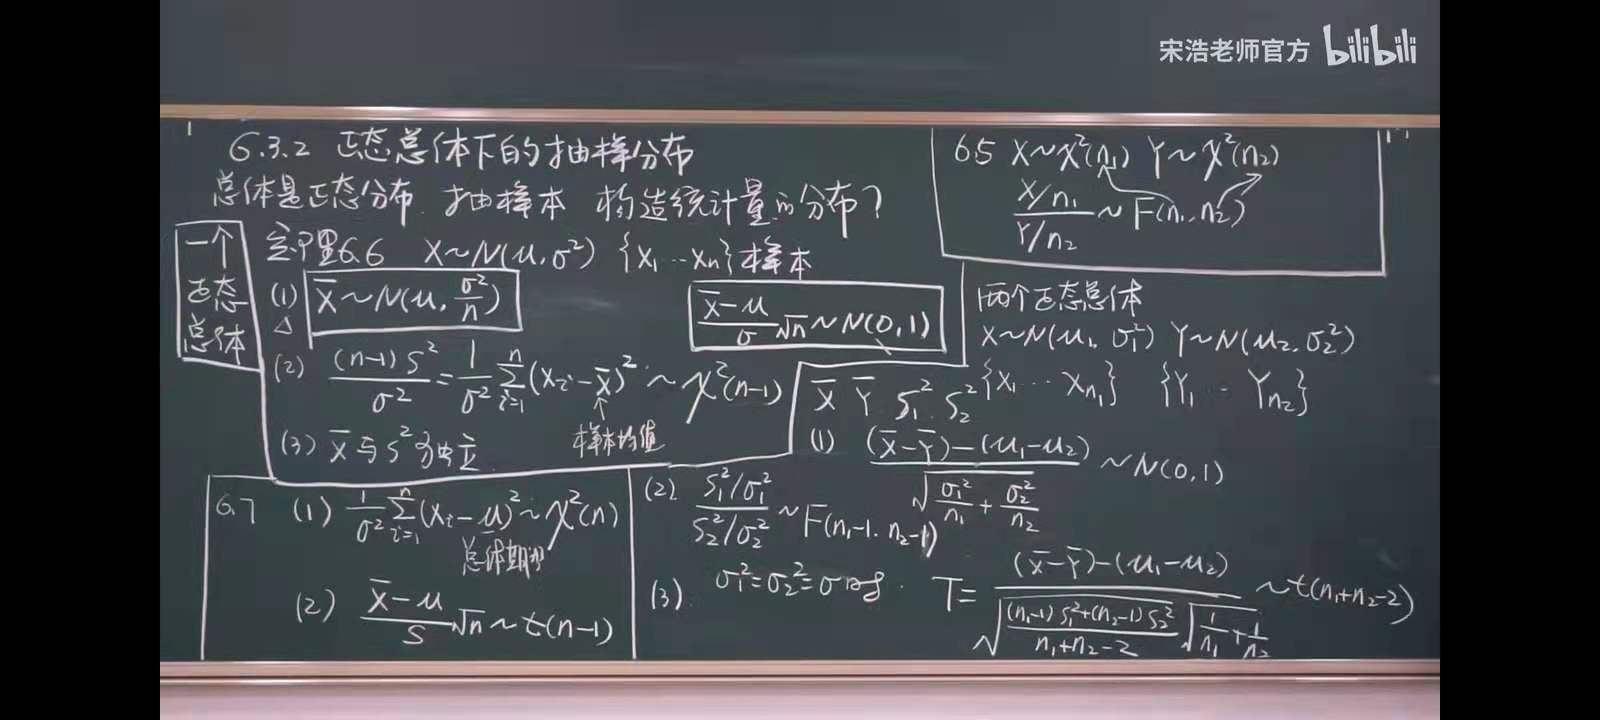 宋浩老师官方 bilibili
6.3.2 正态总体下的抽样分布
总体是正态分布. 抽样本 构造统计量的分布?
一个
正态
总体
定理6.6 X~N(μ,σ²) {X₁…Xn}样本
(1) X̄~N(μ, σ²/n) (X̄-μ)/σ √n ~N(0,1)
△
(2) (n-1)S²/σ² = 1/σ² Σⁿᵢ₌₁(Xᵢ-X̄)² ~ χ²(n-1)
↑
样本均值
(3) X̄与S²独立
6.7 (1) 1/σ² Σⁿᵢ₌₁(Xᵢ-μ)² ~χ²(n)
总体期望
(2) (X̄-μ)/S √n ~ t(n-1)
6.5 X~χ²(n₁) Y~χ²(n₂)
(X/n₁)/(Y/n₂) ~ F(n₁,n₂)
两个正态总体
X~N(μ₁,σ₁²) Y~N(μ₂,σ₂²)
X̄ Ȳ S₁² S₂² {X₁…Xn₁} {Y₁…Yn₂}
(1) ((X̄-Ȳ)-(μ₁-μ₂))/√(σ₁²/n₁+σ₂²/n₂) ~N(0,1)
(2) (S₁²/σ₁²)/(S₂²/σ₂²) ~ F(n₁-1,n₂-1)
(3) σ₁²=σ₂²=σ 时. T= ((X̄-Ȳ)-(μ₁-μ₂))/(√(((n₁-1)S₁²+(n₂-1)S₂²)/(n₁+n₂-2)) √(1/n₁+1/n₂)) ~t(n₁+n₂-2)